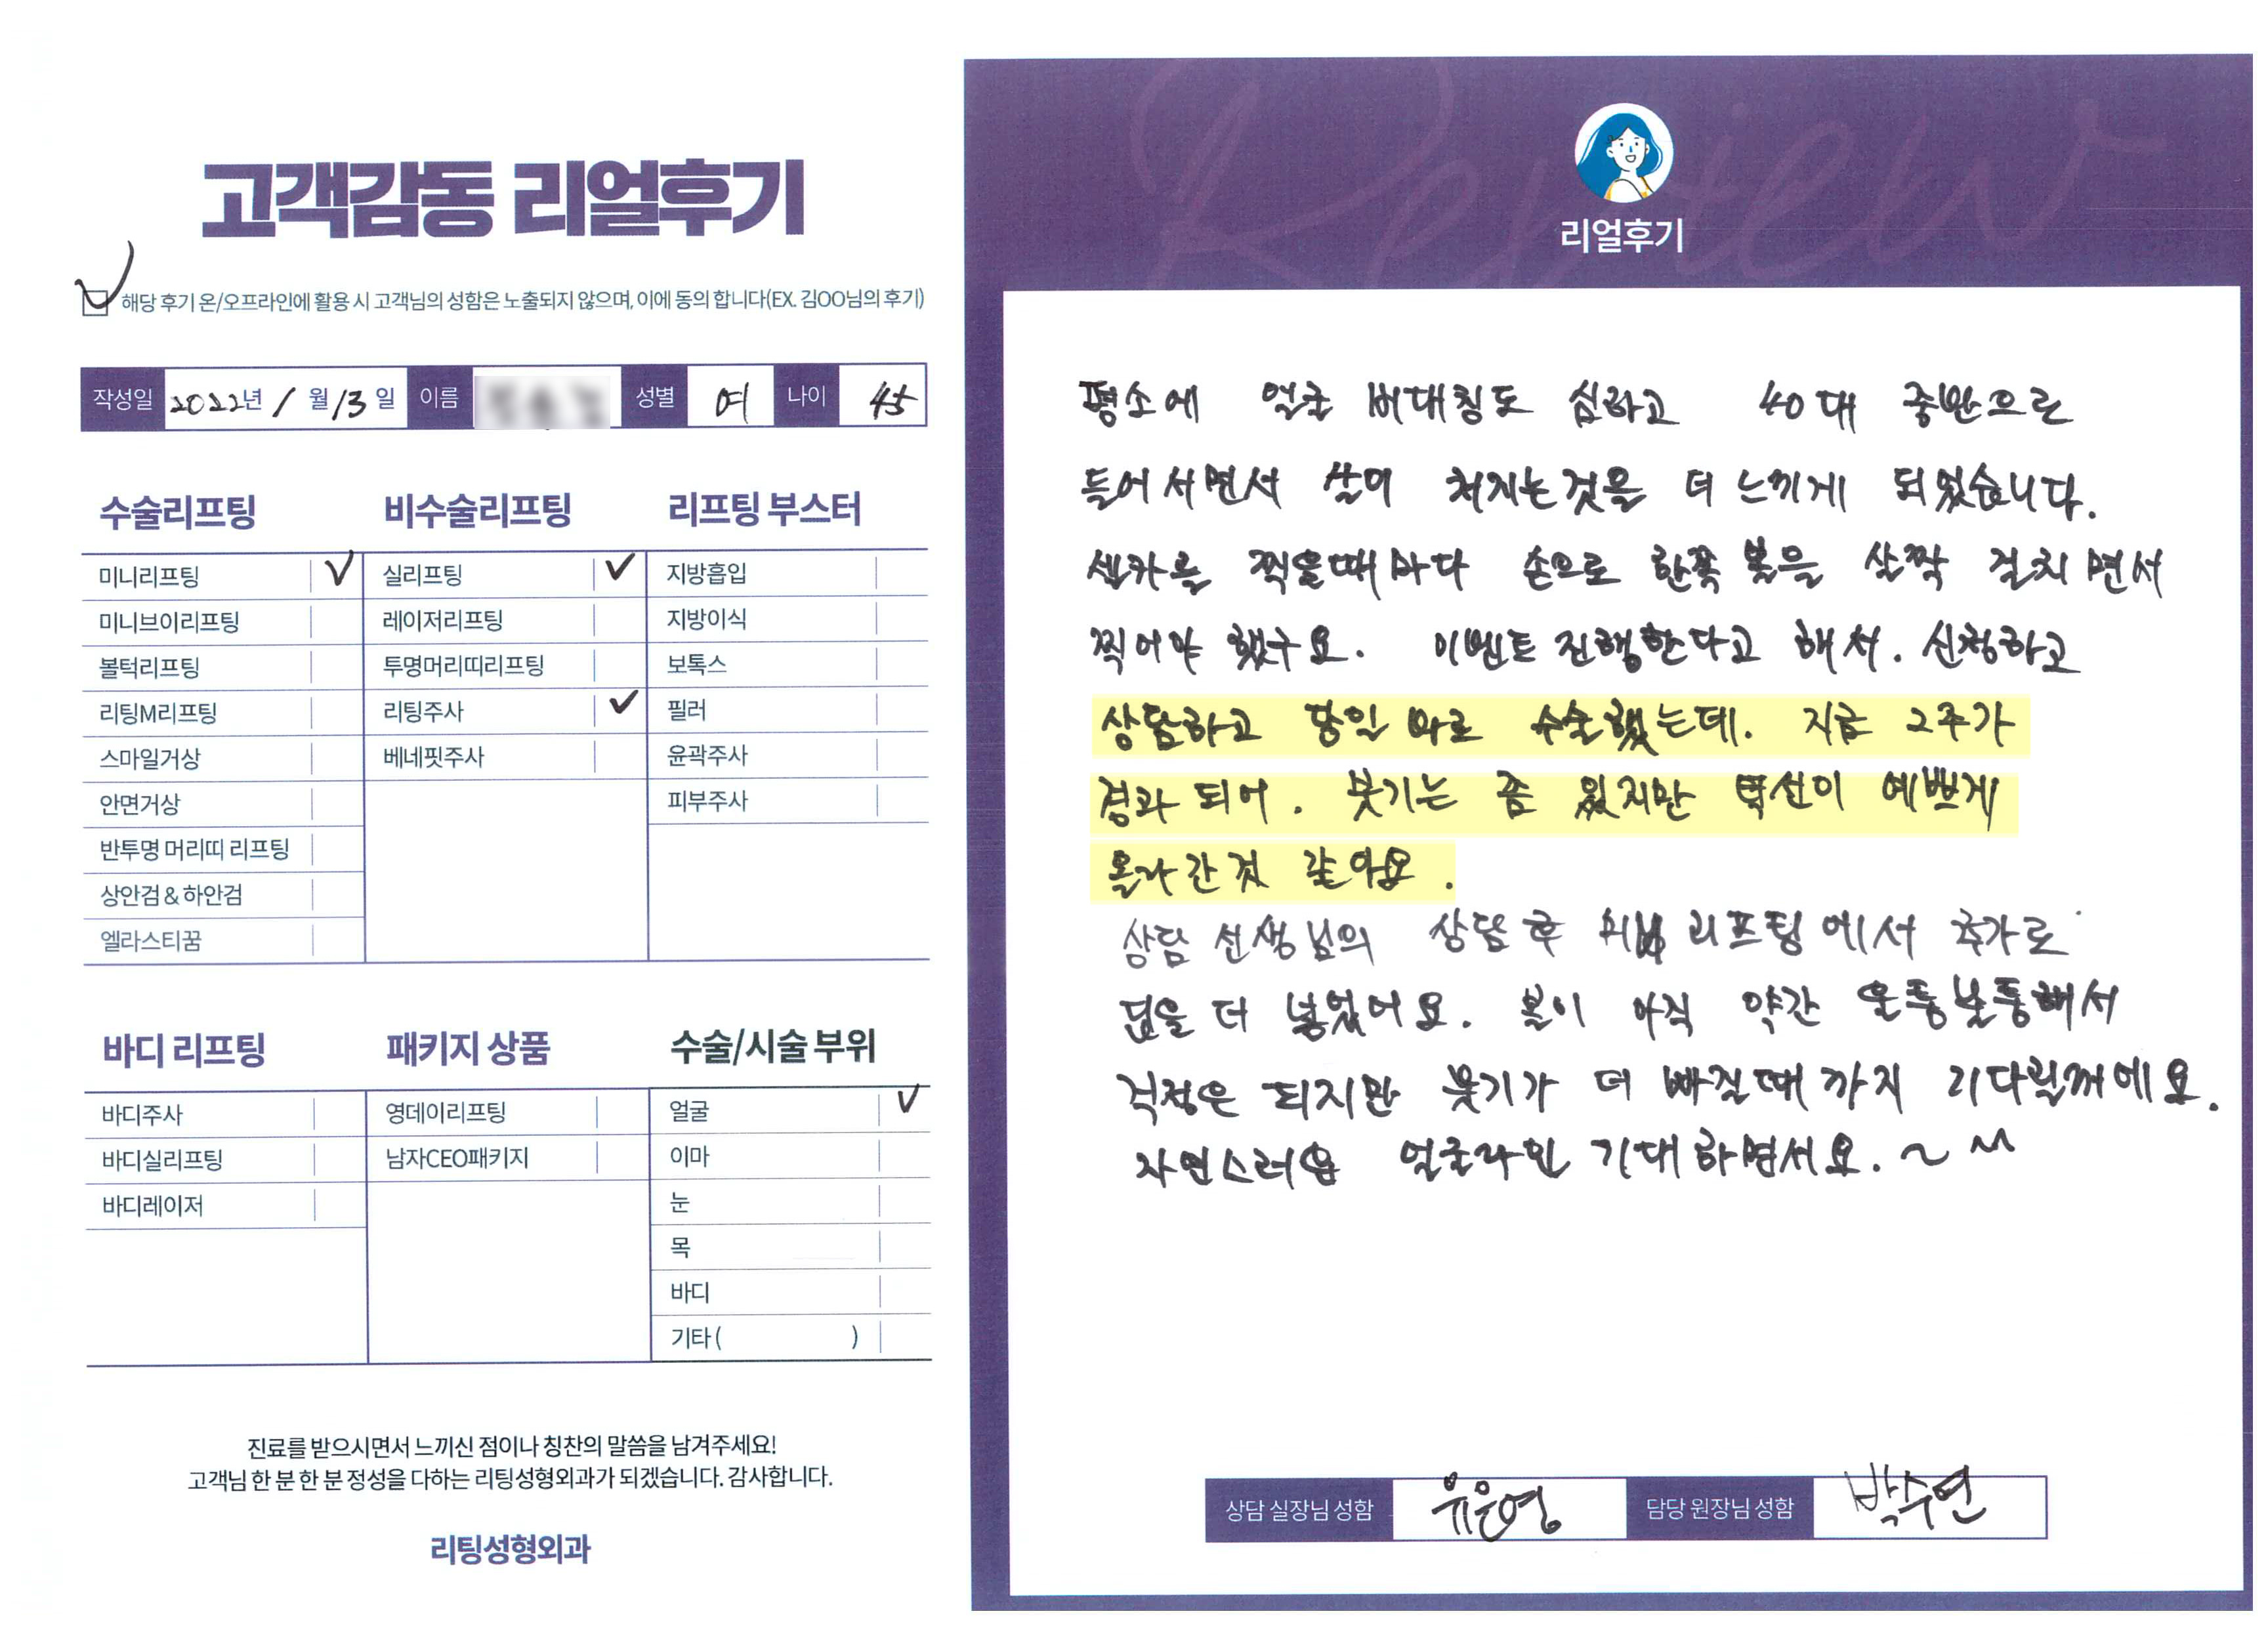 고객감동 리얼후기
해당 후기 온/오프라인에 활용 시 고객님의 성함은 노출되지 않으며, 이에 동의 합니다(EX. 김OO님의 후기)
작성일 2022년 1월 13일 이름 성별 여 나이 45
수술리프팅
미니리프팅 ✓
미니브이리프팅
볼턱리프팅
리팅M리프팅
스마일거상
안면거상
반투명 머리띠 리프팅
상안검 & 하안검
엘라스티꿈
비수술리프팅
실리프팅 ✓
레이저리프팅
투명머리띠리프팅
리팅주사 ✓
베네핏주사
리프팅 부스터
지방흡입
지방이식
보톡스
필러
윤곽주사
피부주사
바디 리프팅
바디주사
바디실리프팅
바디레이저
패키지 상품
영데이리프팅
남자CEO패키지
수술/시술 부위
얼굴 ✓
이마
눈
목
바디
기타 ( )
진료를 받으시면서 느끼신 점이나 칭찬의 말씀을 남겨주세요!
고객님 한 분 한 분 정성을 다하는 리팅성형외과가 되겠습니다. 감사합니다.
리팅성형외과
Review
리얼후기
평소에 얼굴 비대칭도 심하고 40대 중반으로
들어서면서 살이 쳐지는것을 더 느끼게 되었습니다.
셀카를 찍을때마다 손으로 한쪽 볼을 살짝 걸치면서
찍어야 했구요. 이벤트 진행한다고 해서. 신청하고
상담하고 당일 바로 수술했는데. 지금 2주가
경과 되어. 붓기는 좀 있지만 턱선이 예쁘게
올라간것 같아요.
상담 선생님의 상담 후 리프팅에서 추가로
더 넣었어요. 볼이 아직 약간 울퉁불퉁해서
걱정은 되지만 붓기가 더 빠질때까지 기다릴꺼에요.
자연스러운 얼굴라인 기대하면서요. ~ ^^
상담 실장님 성함 유은영 담당 원장님 성함 박수연